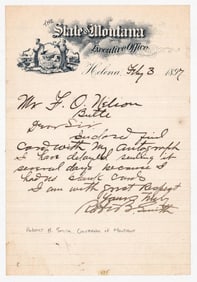 THE
State of Montana
Executive Office
Helena, Feby 3 1897
Mr F. O. Nelson
Butte
Dear Sir
Enclosed find
Card with my Autograph
I have delayed sending it
several days because I
had no blank cards
I am with great Respect
Yours truly
Robt B. Smith
Robert B. Smith, Governor of Montana